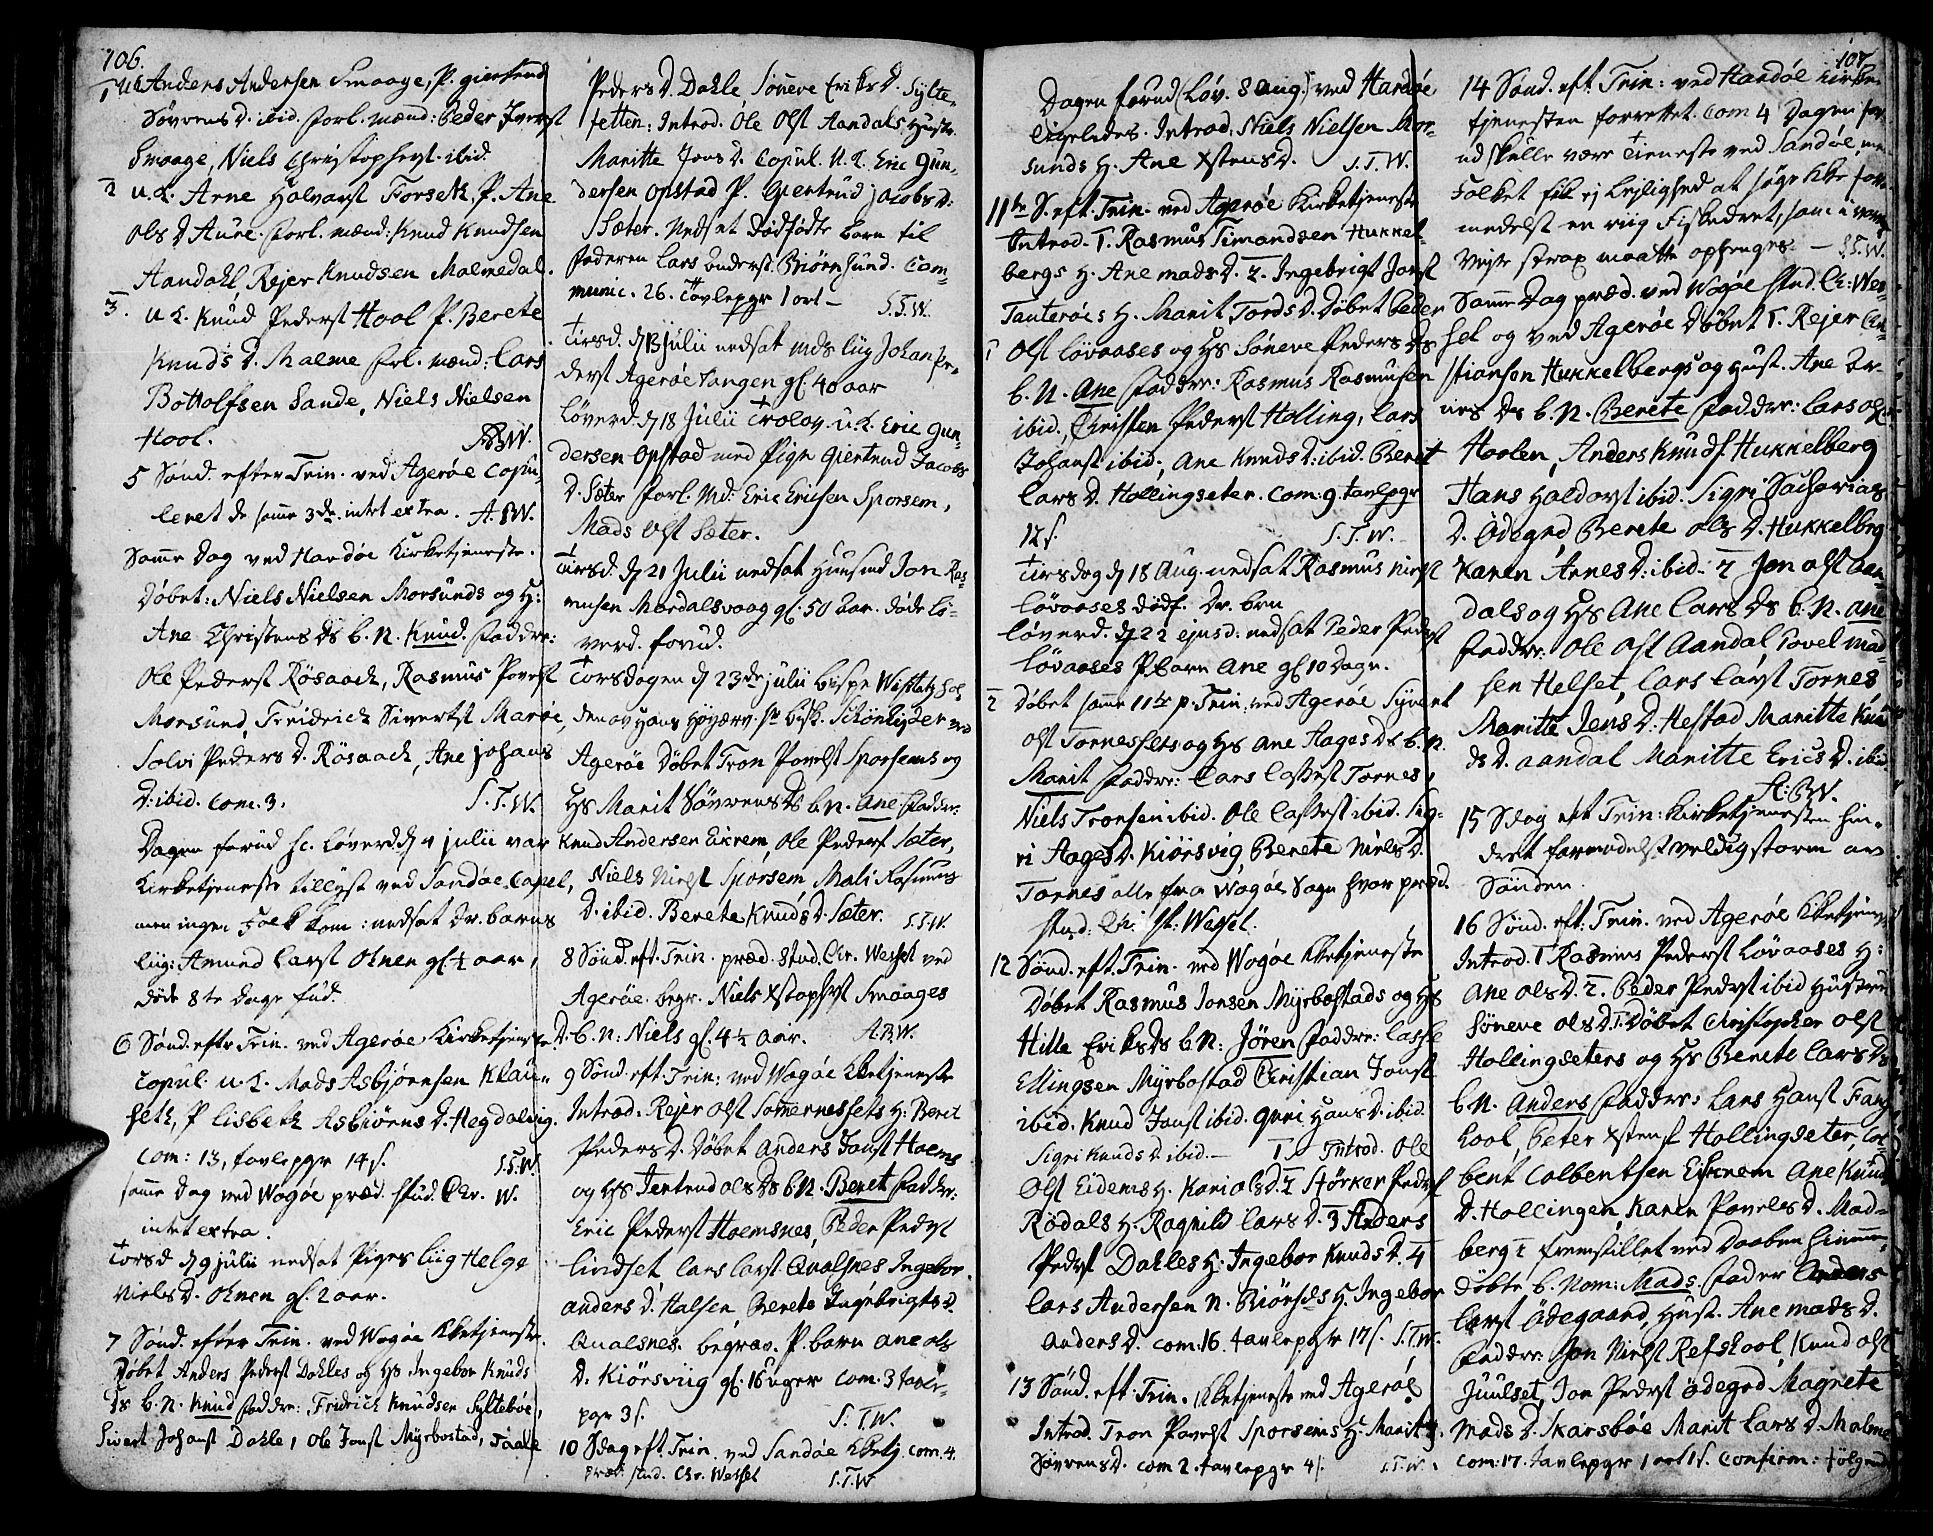 106.
1 U.K Anders Andersen Smaage, P. giertrud
Søvrens D. ibid. forl. mænd: Peder Iverst
Smaage, Niels Christophers. ibid.
2 u.K. Arne Halvorst Forseth, P. Ane
Ols D Aure. forl. mænd: Knud Knudsen
Aandahl Rejer Knudsen Malmedal.
3. u K. Knud Pederst Hool P. Berete
Knuds D. Malme forl. mænd: Lars
Bottolfsen Sande, Niels Nielsen
Hool. ABW.
5 Sønd. efter Trin. ved Agerøe Copu-
leret de samme 3de. intet extra. A.BW.
Samme Dag ved Harøe Kirketjeneste.
Døbet: Niels Nielsen Morsunds og H:
Ane Christens Ds b. N. Knud. Faddre:
Ole Pederst Røsaack, Rasmus Povelst
Morsund, Freidrich Sivertst Marøe,
Solvi Peders D. Røsaack, Ane Johans
D. ibid. Com. 3. S.T.W.
Dagen forud sc. Løverd d 4 julii var
Kirketjeneste tillyst ved Sandøe Capel,
men ingen Folk kom: nedsat Dr. barns
liig: Amund Larst Ohnen gl. ½ aar,
døde 8te dage fud.
6 Sønd. eftr Trin. ved Agerøe Kirketjeneste
Copul. u.K. Mads Asbjørnsen Klau-
seth, P Lisbeth Asbiørns D. Hegdalvig.
Com: 13, tavlepgr 14 s. S.T.W.
samme Dag ved Wogøe præd. stud. Chr. W.
intet extra.
Torsd d 9 julii nedsat Piges liig Helge
Niels D. Ohnen gl. 2 aar.
7 Sønd. efter Trin. ved Wogøe Kketjeneste.
Døbet Anders Pederst Dahles og Hs Ingebor Knuds
Ds b. N. Knud Faddre: Fridrich Knudsen Syltebøe,
Sivert Johanst Dahle, Ole Jonst Myrbostad,
Peders D. Dahle Sønneve Eriks D. Sylte-
setten: Introd. Ole Olst Aandals Hustr.
Maritte Jens D. Copul. U.K. Eric Gun-
dersen Opstad P. Giertrud Jacobs D:
Sæter. Nedsat Dødfødte barn til
faderen Lars Anderst. Biørnsund. Com-
munic. 26. Tavlepgr 1 ort - S.T.W.
Tirsd. d 13 julii nedsat mds liig Johan Pe-
derst Agerøe Vangen gl. 40 aar
Løverd. d 18 Julii Trolov. u.K. Eric Gun-
dersen Opstad med Pigen Giertrud Jacobs
D. Sæter forl. Md: Eric Ericsen Sporsem,
Mads Olst Sæter.
Tirsd. d 21 Julii nedsat Huusmd Jon Ras-
musen Mordalsvaag gl. 50 aar. døde Lø-
verd. forud.
Torsdagen d 23de julii Bispe Visitatz hol-
den av Hans Høyærv. Hr bisk. Schønheyder ved
Agerøe Døbet Tron Povelst Sporsems og
Hs Marit Søvrens Ds b.N. Ane Faddr:
Knud Andersen Eikrem, Ole Pederst Sæter,
Niels Nielst Sporsem Mali Rasmus
D. ibid. Berete Knuds D. Sæter. S.T.W.
8 Sønd. eft. Trin. præd. Stud. Chr. Wessel ved
Agerøe. begr. Niels Xstopherst Smaages
D. b. N. Niels gl. 4½ aar. A.B.W.
9 Sønd. eft. Trin: ved Wogøe Kketjeneste
Introd. Rejer Olst Sommernessets H: Berit
Peders D. Døbet Anders Jonst Hoems
og Hs Jertrud Ols Ds b.N. Beret Faddr:
Eric Pederst Hoemsnes, Peder Pedrst
Lindset Lars Larst Qualsnes Ingebor
Anders D. Halsen Berete Ingebrigts D.
Qualsnes. begrav. P. barn Ane Ols
D. Kiörsviig gl. 16 uger Com. 3 tavle-
pgr 3 s. S.T.W.
10 Sdag eft Trin. ved Sandøe Kketj. Com. 4.
præd. stud. Chr. Wessel S.T.W
107
Dagen forud (Løv. 8 Aug.) ved Harøe
Ligeledes. Introd. Niels Nielsen Mor-
sunds H. Ane Xstens D. S.T.W.
11te S. eft. Trin. ved Agerøe Kirketjeneste
Introd. 1. Rasmus Simondsen Hukkel-
bergs H. Ane Mads D. 2. Ingebrigt Jonst
Tanterøes H. Marit Tords D. Døbet Peder
1 Olst Løvaases og Hs Sønneve Peders Ds
b. N. Ane Faddr: Rasmus Rasmusen
ibid., Christen Pederst Holling, Lars
Johanst ibid., Ane Knuds D. ibid. Berit
Lars D. Hollingseter. Com: 9. tavlepgr
12 s. S.T.W.
Tirsdag d 18 Aug. nedsat Rasmus
Løvaases dødf. Dr. brn
Løverd. d 22 ejusd: nedsat Peder Pederst
Løvaases P barn Ane gl 10 Dage.
2 Døbet samme 11te p. Trin. ved Agerøe Syvert
Olst Tornessets og Hs Ane Hages Ds b.N.
Marit Faddr: Lars Lassest Tornes,
Niels Tronsen ibid. Ole Lassest ibid. Sig-
ri Aages D. Kiörsvig, Berete Niels D.
Tornes alle fra Wogøe Sogn hvor præd.
stud: Christ: Wessel.
12 Sønd. eft. Trin. ved Wogøe Kketjeneste
Døbet Rasmus Jonsen Myrbostads og Hs
Hille Eriks Ds b.N: Jören Faddre: Lasse
Ellingsen Myrbostad Christian Jonst
ibid. Knud Jonst ibid. Guri Hans D. ibid.
Sigri Knuds D. ibid. - 1. Introd. Ole
Olst Eidems H. Kari Ols D. 2 Størker Pederst
Rödals H. Ragnild Lars D. 3 Anders
Pedrst Dahles H. Ingebor Knuds D. 4
Lars Andersen N. Biörsets H. Ingebor
Anders D. Com. 16. tavlepgr 17 s. S.T.W.
13 Sønd. eft. Trin. Kketjeneste ved Agerøe
Introd. Tron Povelst Sporsems H. Marit
Søvrens D. Com 2. tavlepgr 4 s. S.T.W.
14 Sønd. eft. Trin: ved Harøe Kirke-
tjenesten forrettet. Com 4 Dagen for-
ud skulle være Tieneste ved Sandøe, men
Folket fik ej Lejlighed at søge Kkr for-
medelst en riig Fiskedret, som i
Vejr strax maatte ophenges. - S.T.W.
Samme Dag præd. ved Wogøe stud. Ch: Wes-
sel og ved Agerøe Døbet 1. Rejer Chri-
stiansen Hukkelbergs og Hust. Ane Ar-
nes Ds b. N. Berete Faddre: Lars Olst
Hoolen, Anders Knuds. Hukkelberg
Hans Haldorst ibid. Sigri Sacharias
D. Ödegrd Berete Ols D. Hukkelbrg
Karen Arnes D. ibid. 2 Jon Olst Aan-
dals og Hs Ane Lars Ds b.N. Ane
Faddr. Ole Olst Aandal, Povel Mad-
sen Helset, Lars Larst Tornes
Maritte Jens D. Hestad Maritte Knu-
ds D. Aandal Maritte Erics D. ibid.
A.BW.
15 Sdag eft Trin: Kirketjenesten hin-
dret formedelst veldig storm av
Sønden.
16 Sønd. eft. Trin. ved Agerøe Kketjeneste
Introd. 1 Rasmus Pederst Løvaases H:
Ane Ols D. 2. Peder Pedrst ibid Hustrue
Sønneve Ols D. 1. Døbet Christopher Olst
Hollingseters og Hs Berete Lars Ds
b.N. Anders Faddre: Lars Hanst Fang-
hool, Peter Xstens. Hollingseter, Col-
bent Colbentsen Eikrem Ane Knuds
D. Hollingen, Karen Povels D. Mad-
berg 2 fremstillet ved Daaben hiemme-
døbte b. Nom: Mads. Fader Anders
Larst Ödegaard, Hust. Ane Mads D.
Faddre. Jon Nielst Refshool, Knud Olst
Juulset, Jon Pedrst Ödegrd, Magrete
Mads D. Skarsbøe Marit Lars D. Malme
Com: 17. tavlepgr 1 ort 1 s. Confirm: følgende